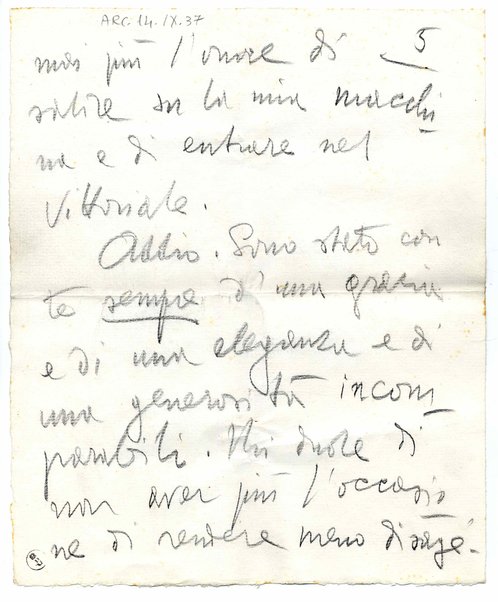 ARC. 14. IX. 37
5
mai più l'onore di
salire su la mia macchi
na e di entrare nel
Vittoriale.
Addio. Sono stato con
te sempre d'una grazia
e di una eleganza e di
una generosità incom
parabili. Mi duole di
non aver più l'occasio
ne di rendere meno disage-